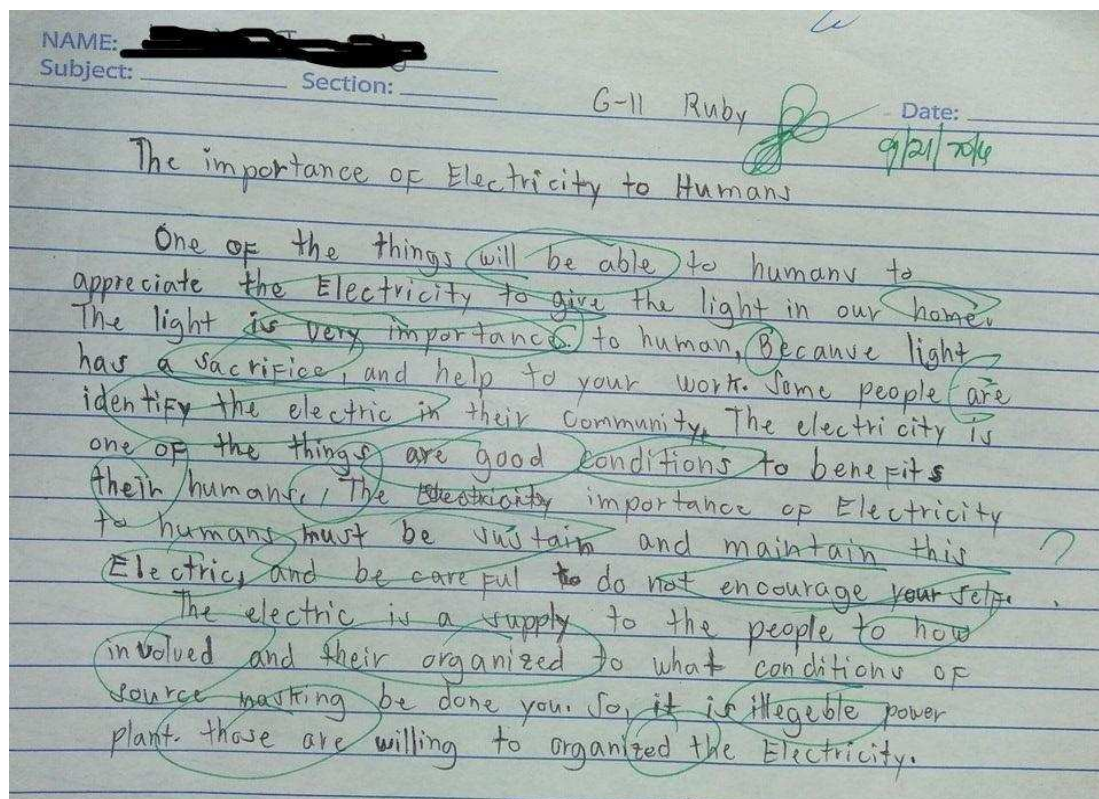 NAME:
Subject: Section:
G-11 Ruby Date:
9/21/2016
The importance of Electricity to Humans
One of the things will be able to humans to
appreciate the Electricity to give the light in our home.
The light is very importances. to human, Because light
has a sacrifice, and help to your work. Some people are
identify the electric in their community, The electricity is
one of the things are good conditions to benefits
their humans, The Electricity importance of Electricity
to humans must be sustain and maintain this ?
Electric, and be careful to do not encourage your self.
The electric is a supply to the people to how
involved and their organized to what conditions of
source masking be done you. So, it is illegeble power
plant. those are willing to organized the Electricity.